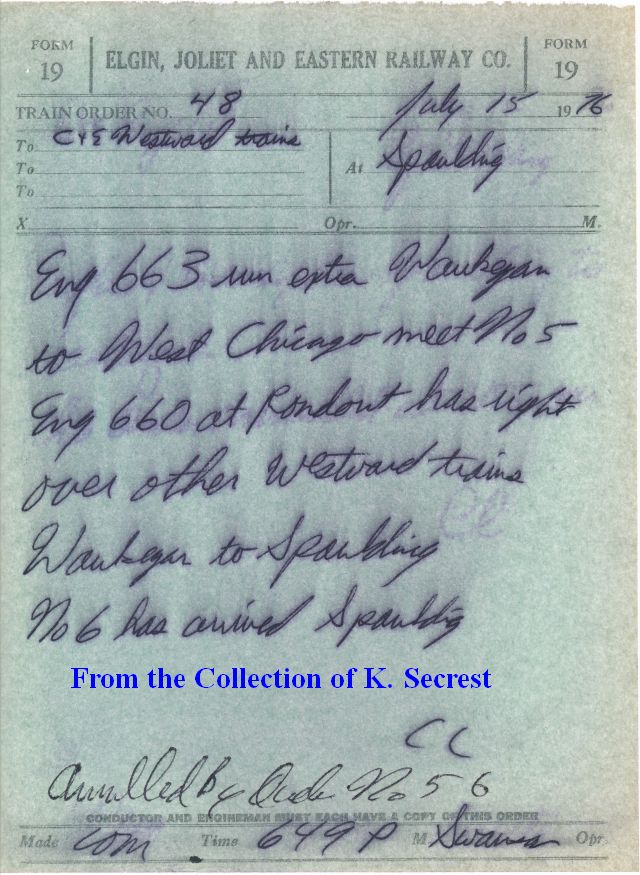 FORM 19 ELGIN, JOLIET AND EASTERN RAILWAY CO. FORM 19
TRAIN ORDER NO. 48 July 15 1976
To C&E Westward trains
To At Spaulding
To
X Opr. M.
Eng 663 run extra Waukegan
to West Chicago meet No 5
Eng 660 at Rondout has right
over other Westward trains
Waukegan to Spaulding
No 6 has arrived Spaulding
From the Collection of K. Secrest
CC
Annulled By Order No 56
CONDUCTOR AND ENGINEMAN MUST EACH HAVE A COPY OF THIS ORDER
Made Com Time 649 P M Swanson Opr.